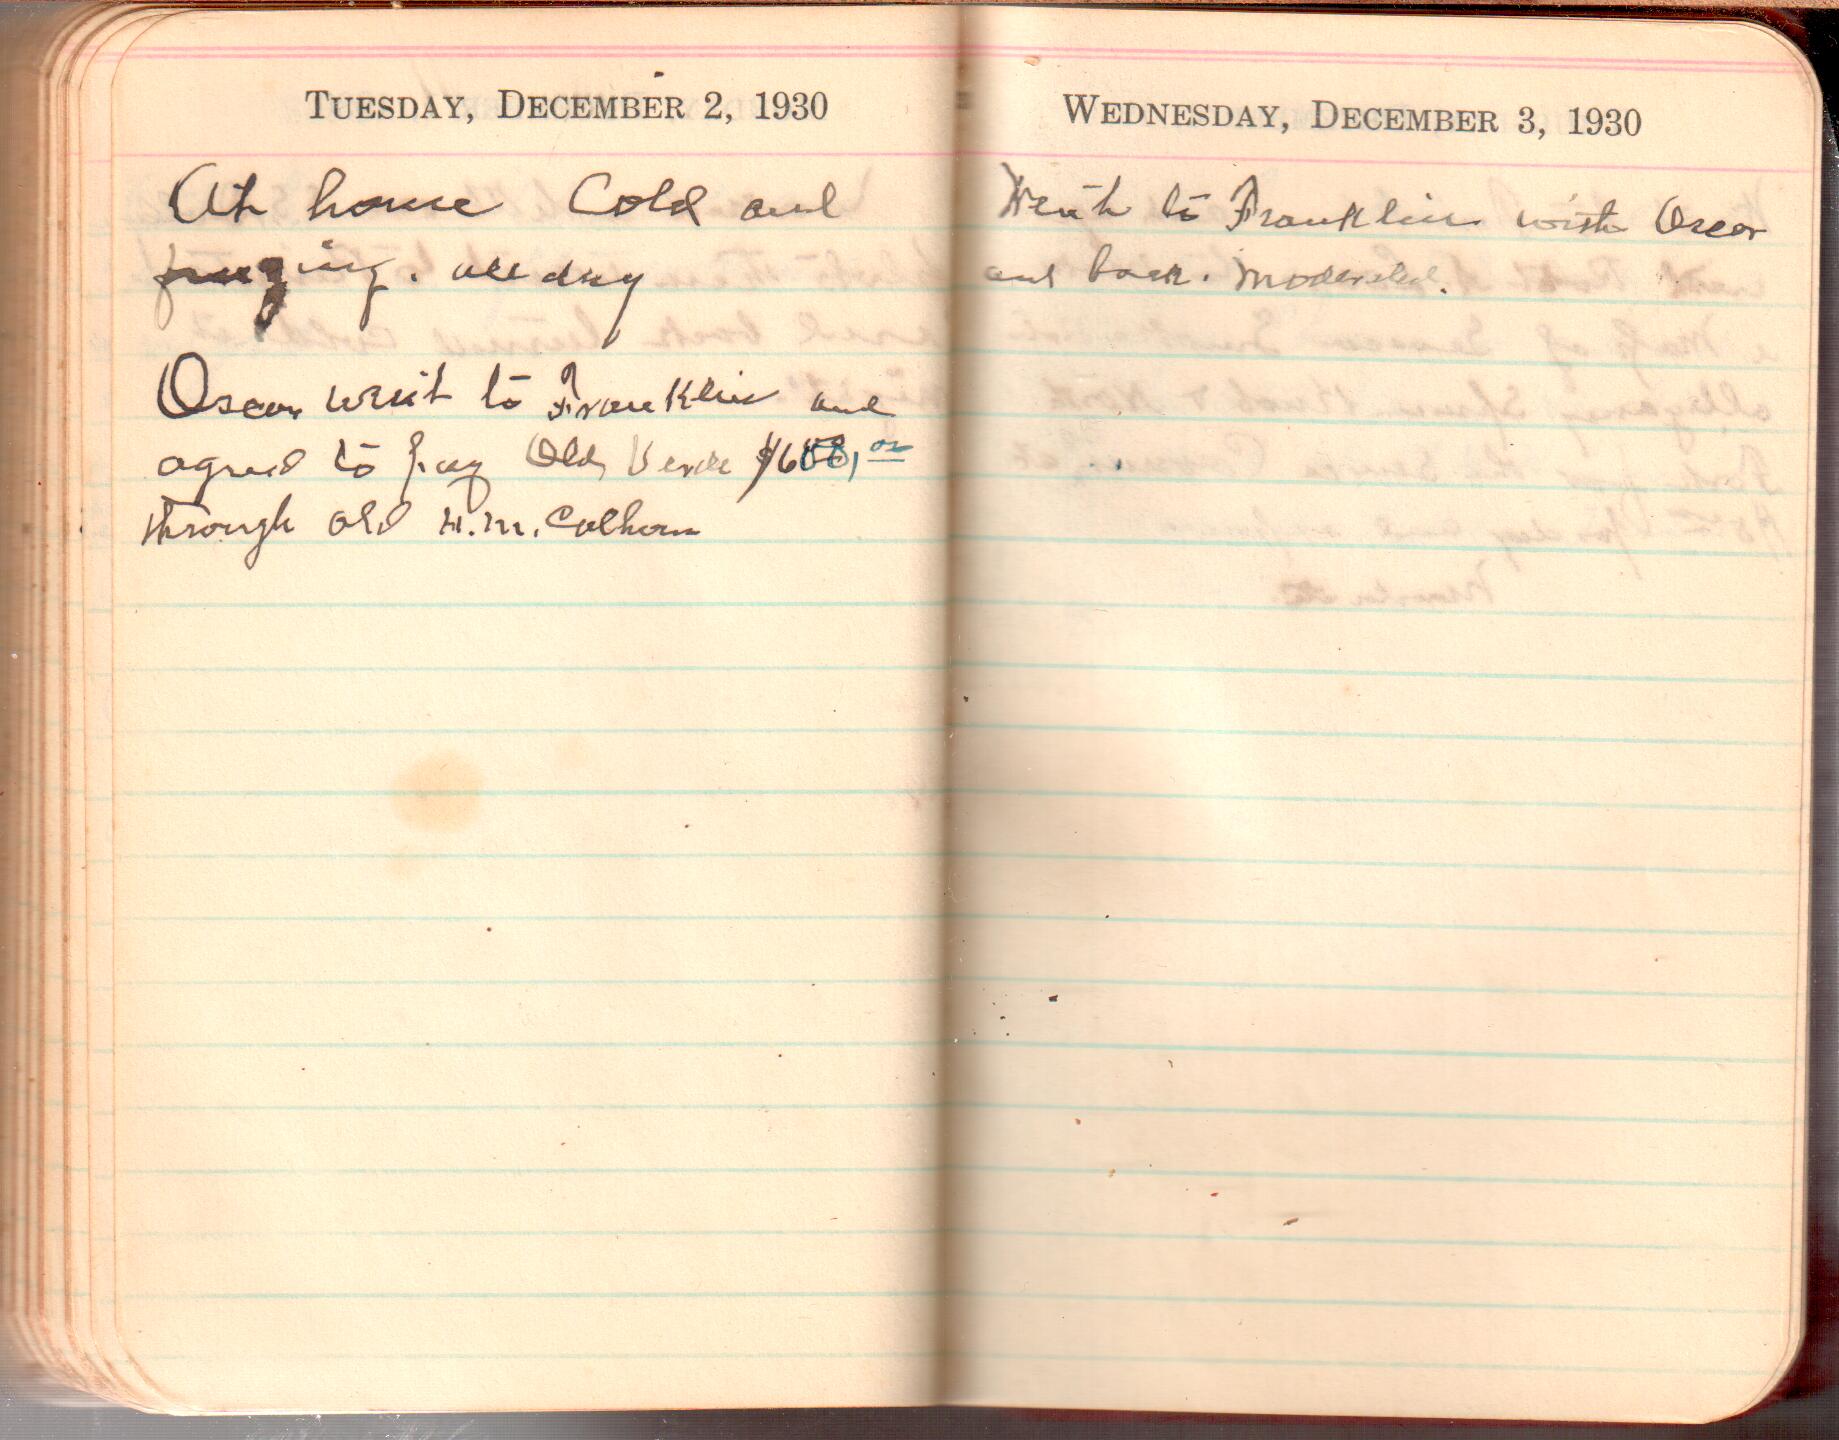 TUESDAY, DECEMBER 2, 1930
At home Cold and
all day
Oscar went to Franklin and
agreed to pay Old
through old H.M. Calhoun
WEDNESDAY, DECEMBER 3, 1930
Went to Franklin with Oscar
and back. Moderated.